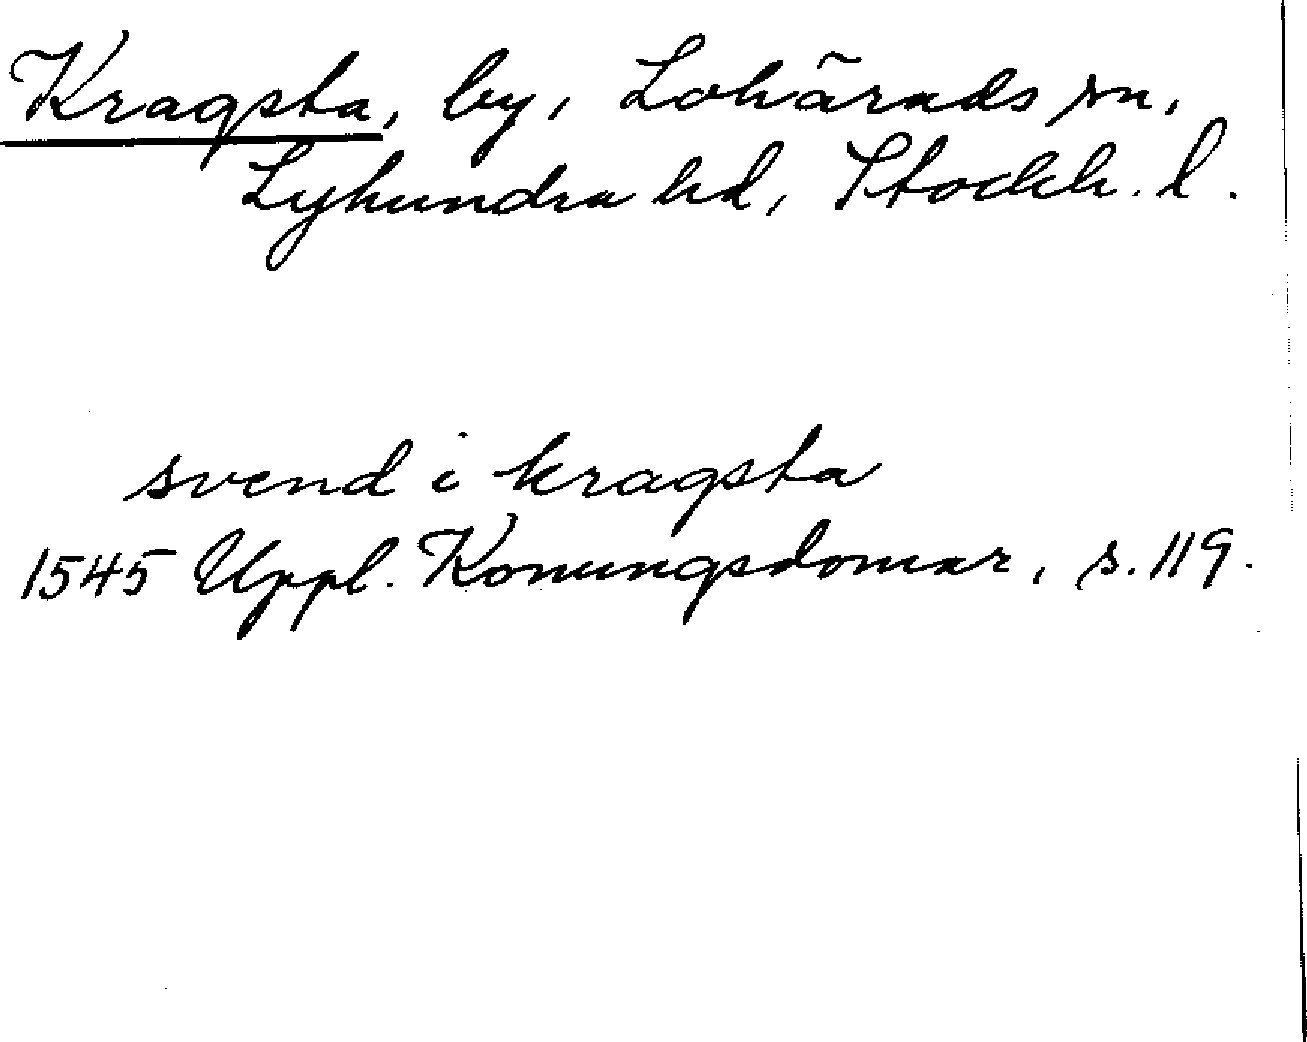 Kragsta, by, Lohärads sn,
Lyhundra hd, Stockh. l.
svend i kragsta
1545 Uppl. Konungsdomar, s. 119.